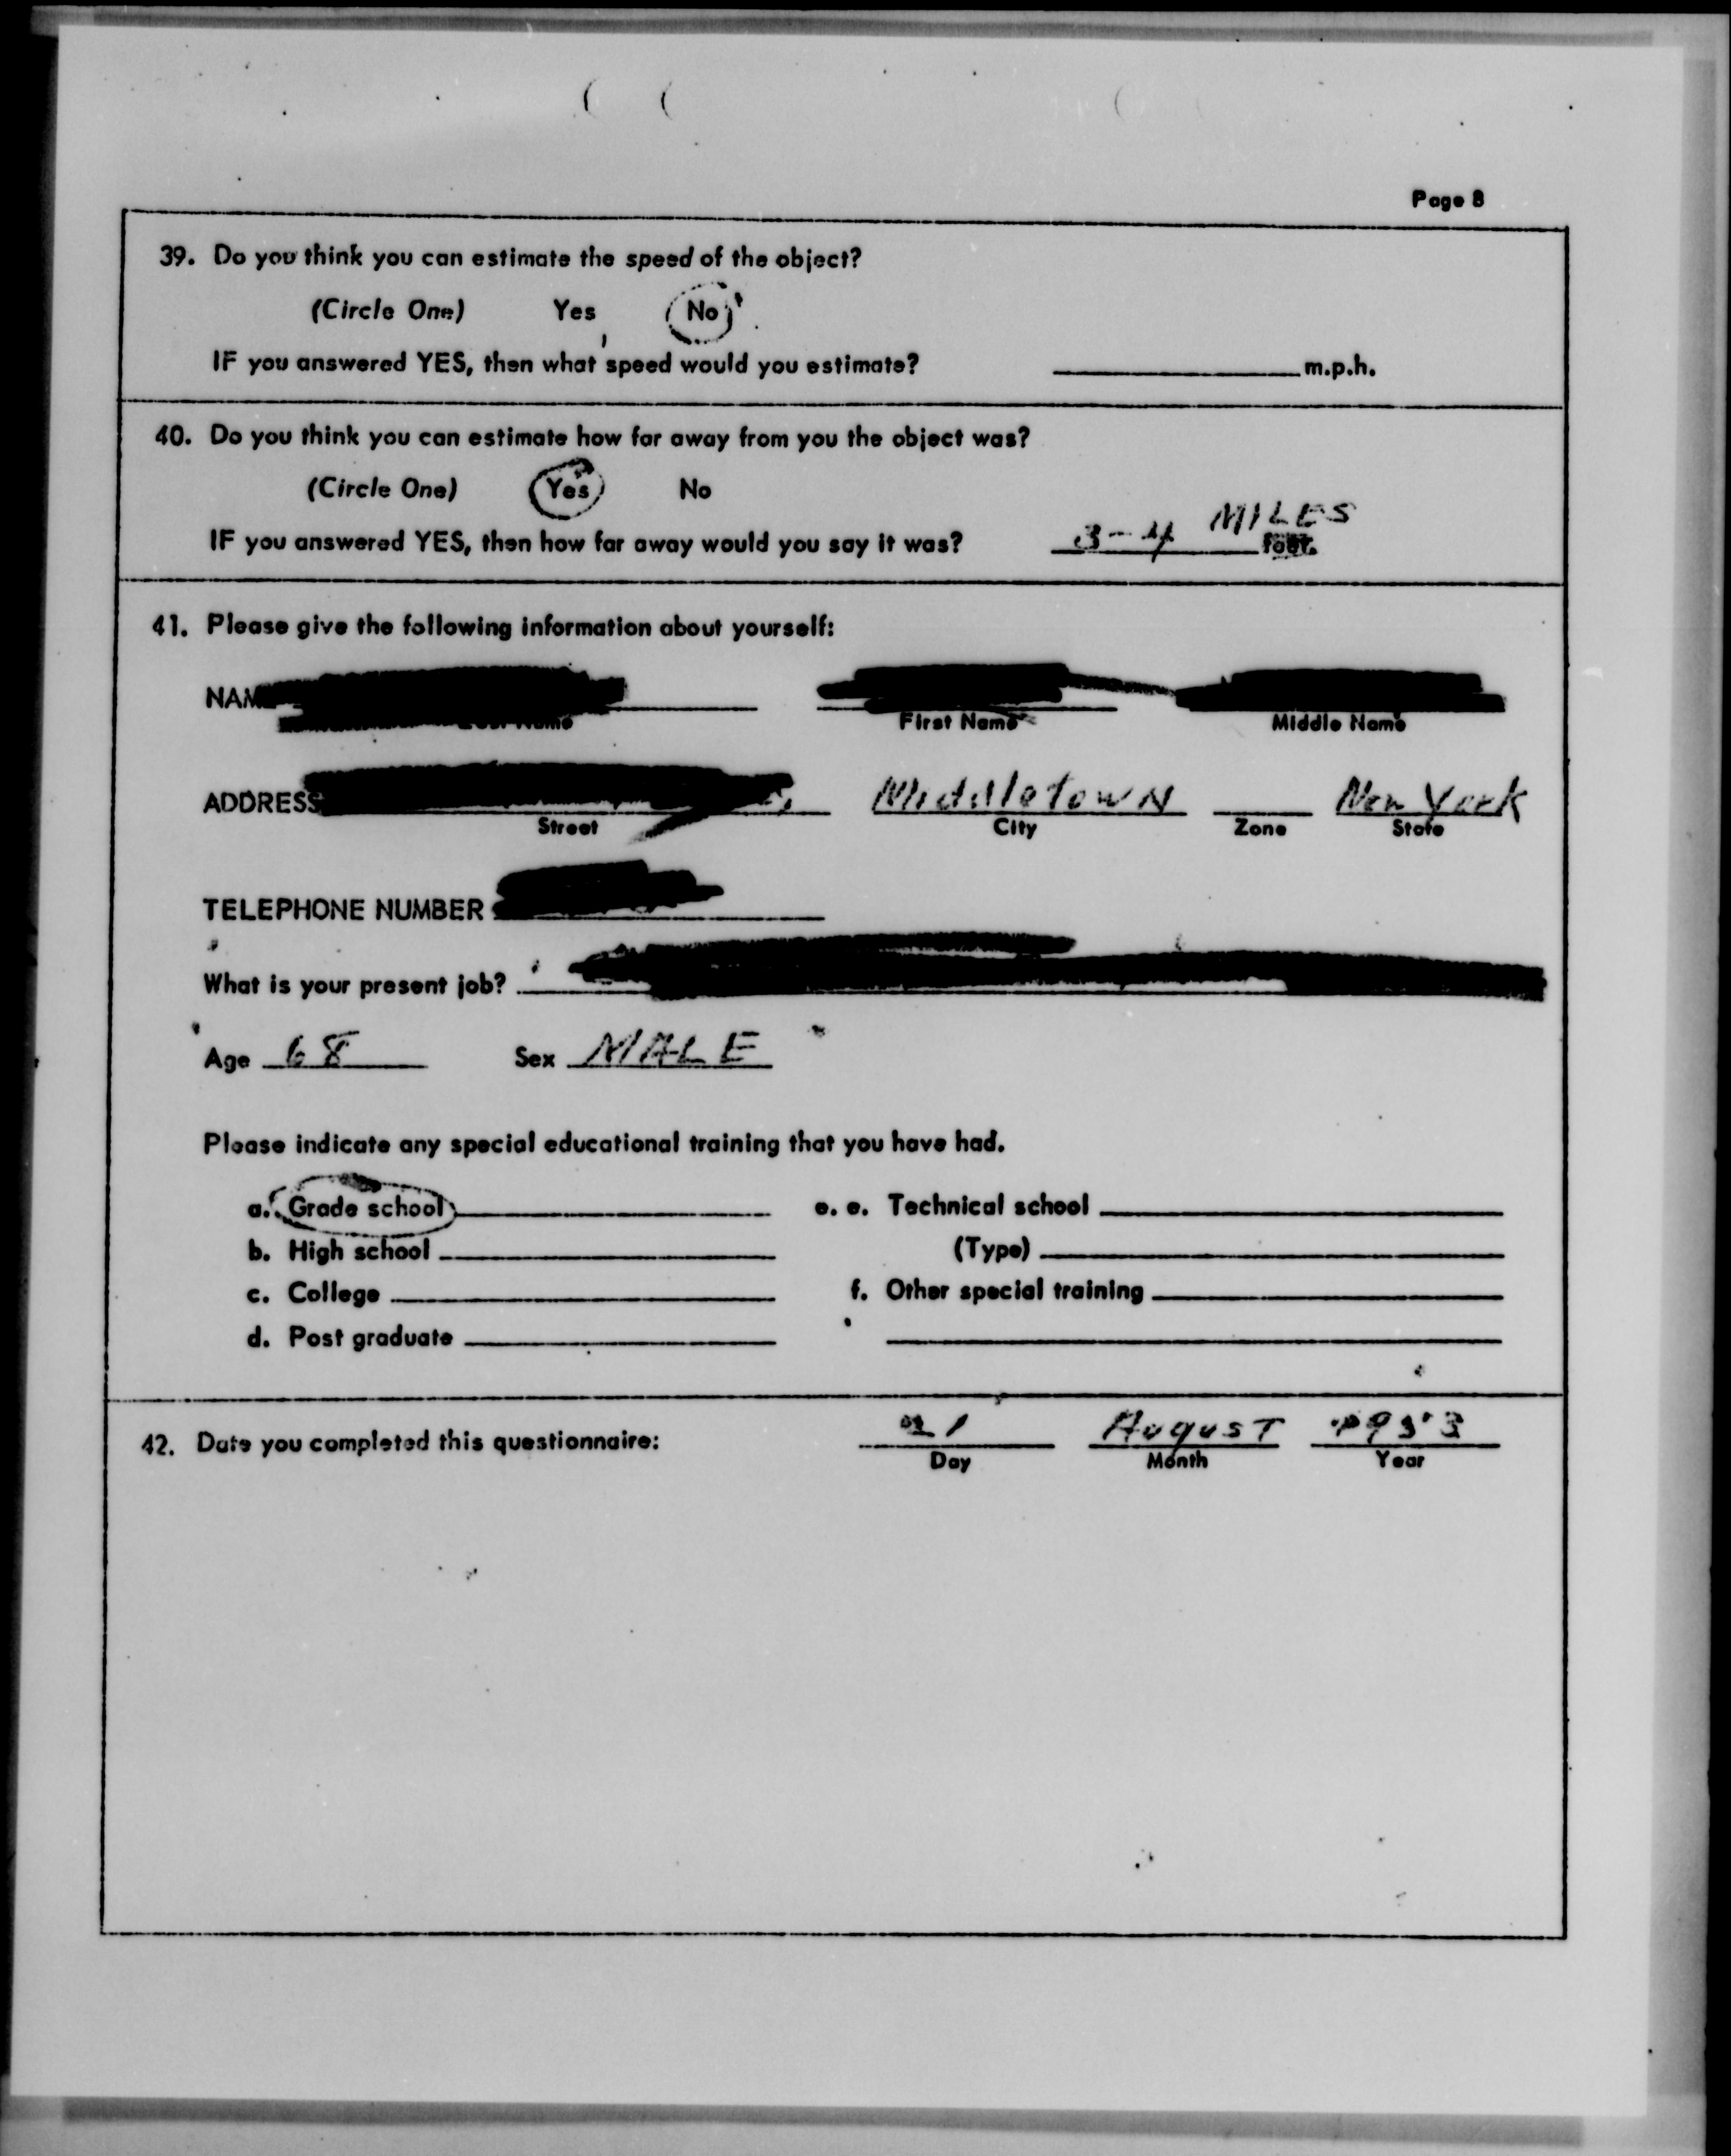 Page 8
39. Do you think you can estimate the speed of the object?
(Circle One) Yes No
IF you answered YES, then what speed would you estimate? m.p.h.
40. Do you think you can estimate how far away from you the object was?
(Circle One) Yes No
IF you answered YES, then how far away would you say it was? 3-4 MILES feet.
41. Please give the following information about yourself:
First Name Middle Name
ADDRESS Middletown New York
Street City Zone State
TELEPHONE NUMBER
What is your present job?
Age 68 Sex MALE
Please indicate any special educational training that you have had.
a. Grade school e. e. Technical school
b. High school (Type)
c. College f. Other special training
d. Post graduate
42. Date you completed this questionnaire: August
Day Month Year